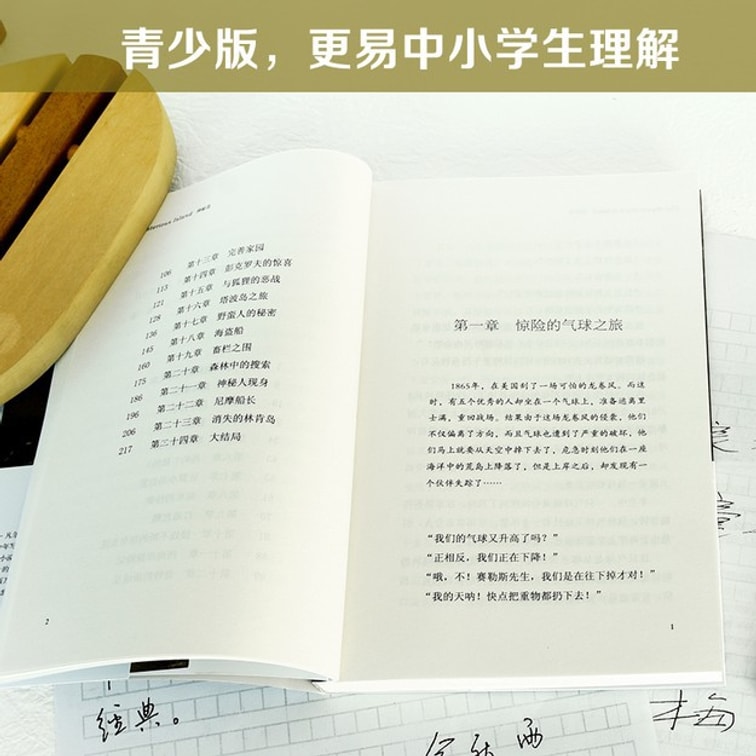 青少版，更易中小学生理解
Island 神秘岛
106 第十三章 完善家园
115 第十四章 彭克罗夫的惊喜
121 第十五章 与狐狸的恶战
128 第十六章 塔波岛之旅
136 第十七章 野蛮人的秘密
145 第十八章 海盗船
160 第十九章 畜栏之围
175 第二十章 森林中的搜索
186 第二十一章 神秘人现身
196 第二十二章 尼摩船长
206 第二十三章 消失的林肯岛
217 第二十四章 大结局
2
第一章 惊险的气球之旅
1865年，在美国刮了一场可怕的龙卷风。而这
时，有五个优秀的人却坐在一个气球上，准备逃离里
士满，重回战场。结果由于这场龙卷风的侵袭，他们
不仅偏离了方向，而且气球也遭到了严重的破坏，他
们马上就要从天空中掉下去了，危急时刻他们在一座
海洋中的荒岛上降落了，但是上岸之后，却发现有一
个伙伴失踪了……
“我们的气球又升高了吗？”
“正相反，我们正在下降！”
“哦，不！赛勒斯先生，我们是在往下掉才对！”
“我的天呐！快点把重物都扔下去！”
1
经典。
梅